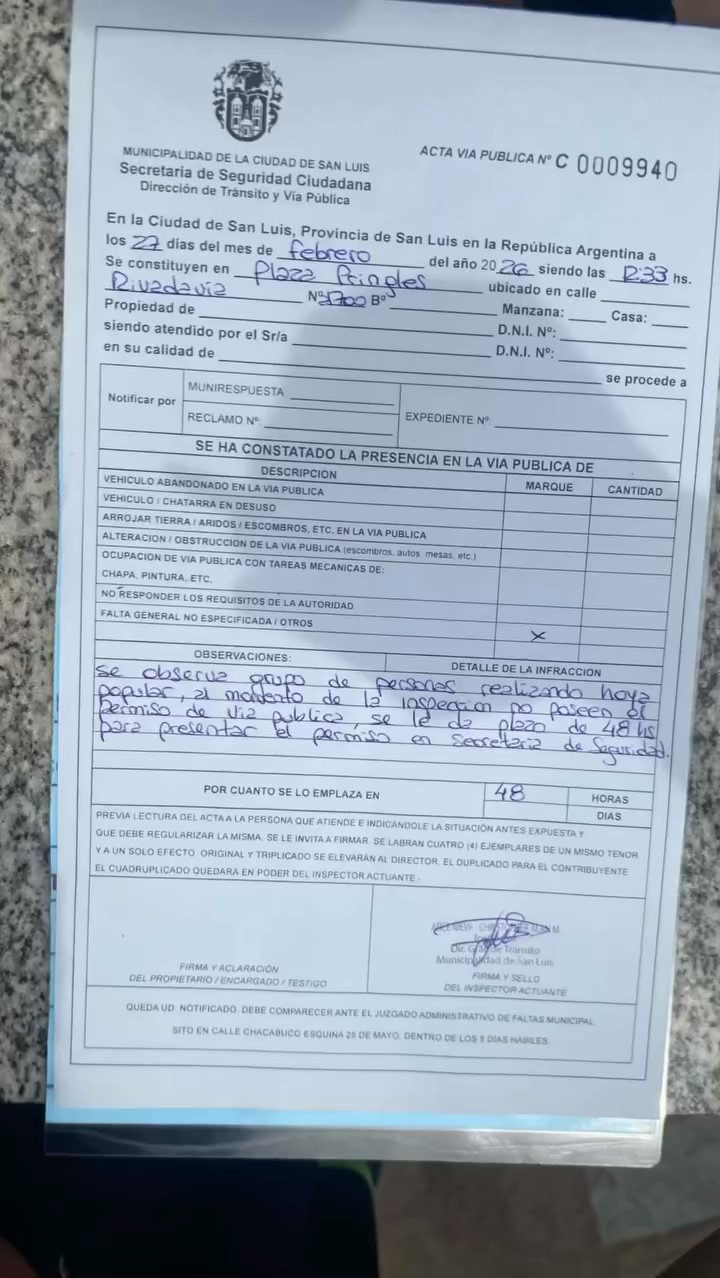 MUNICIPALIDAD DE LA CIUDAD DE SAN LUIS
Secretaria de Seguridad Ciudadana
Dirección de Tránsito y Vía Pública
ACTA VIA PUBLICA Nº C 0009940
En la Ciudad de San Luis, Provincia de San Luis en la República Argentina a
los 27 días del mes de febrero del año 2026 siendo las 12:33 hs.
Se constituyen en Plaza Pringles ubicado en calle
Rivadavia Nº Bº Manzana: Casa:
Propiedad de D.N.I. Nº:
siendo atendido por el Sr/a D.N.I. Nº:
en su calidad de se procede a
Notificar por
MUNIRESPUESTA
RECLAMO Nº
EXPEDIENTE Nº
SE HA CONSTATADO LA PRESENCIA EN LA VIA PUBLICA DE
DESCRIPCIÓN MARQUE CANTIDAD
VEHICULO ABANDONADO EN LA VIA PUBLICA
VEHICULO / CHATARRA EN DESUSO
ARROJAR TIERRA / ARIDOS / ESCOMBROS, ETC. EN LA VIA PUBLICA
ALTERACION / OBSTRUCCION DE LA VIA PUBLICA (escombros, autos, mesas, etc.)
OCUPACION DE VIA PUBLICA CON TAREAS MECANICAS DE:
CHAPA, PINTURA, ETC.
NO RESPONDER LOS REQUISITOS DE LA AUTORIDAD
FALTA GENERAL NO ESPECIFICADA / OTROS X
OBSERVACIONES: DETALLE DE LA INFRACCION
se observa grupo de personas realizando hoya
popular, al momento de la inspeccion no poseen el
permiso de via publica, se le da plazo de 48 hs
para presentar el permiso en Secretaria de Seguridad.
POR CUANTO SE LO EMPLAZA EN 48 HORAS
DIAS
PREVIA LECTURA DEL ACTA A LA PERSONA QUE ATIENDE E INDICÁNDOLE LA SITUACIÓN ANTES EXPUESTA Y
QUE DEBE REGULARIZAR LA MISMA, SE LE INVITA A FIRMAR. SE LABRAN CUATRO (4) EJEMPLARES DE UN MISMO TENOR
Y A UN SOLO EFECTO. ORIGINAL Y TRIPLICADO SE ELEVARÁN AL DIRECTOR, EL DUPLICADO PARA EL CONTRIBUYENTE
EL CUADRUPLICADO QUEDARA EN PODER DEL INSPECTOR ACTUANTE.-
FIRMA Y ACLARACIÓN
DEL PROPIETARIO / ENCARGADO / TESTIGO
de Transito
Municipalidad de San Luis
FIRMA Y SELLO
DEL INSPECTOR ACTUANTE
QUEDA UD. NOTIFICADO. DEBE COMPARECER ANTE EL JUZGADO ADMINISTRATIVO DE FALTAS MUNICIPAL
SITO EN CALLE CHACABUCO ESQUINA 25 DE MAYO, DENTRO DE LOS 5 DIAS HABILES.